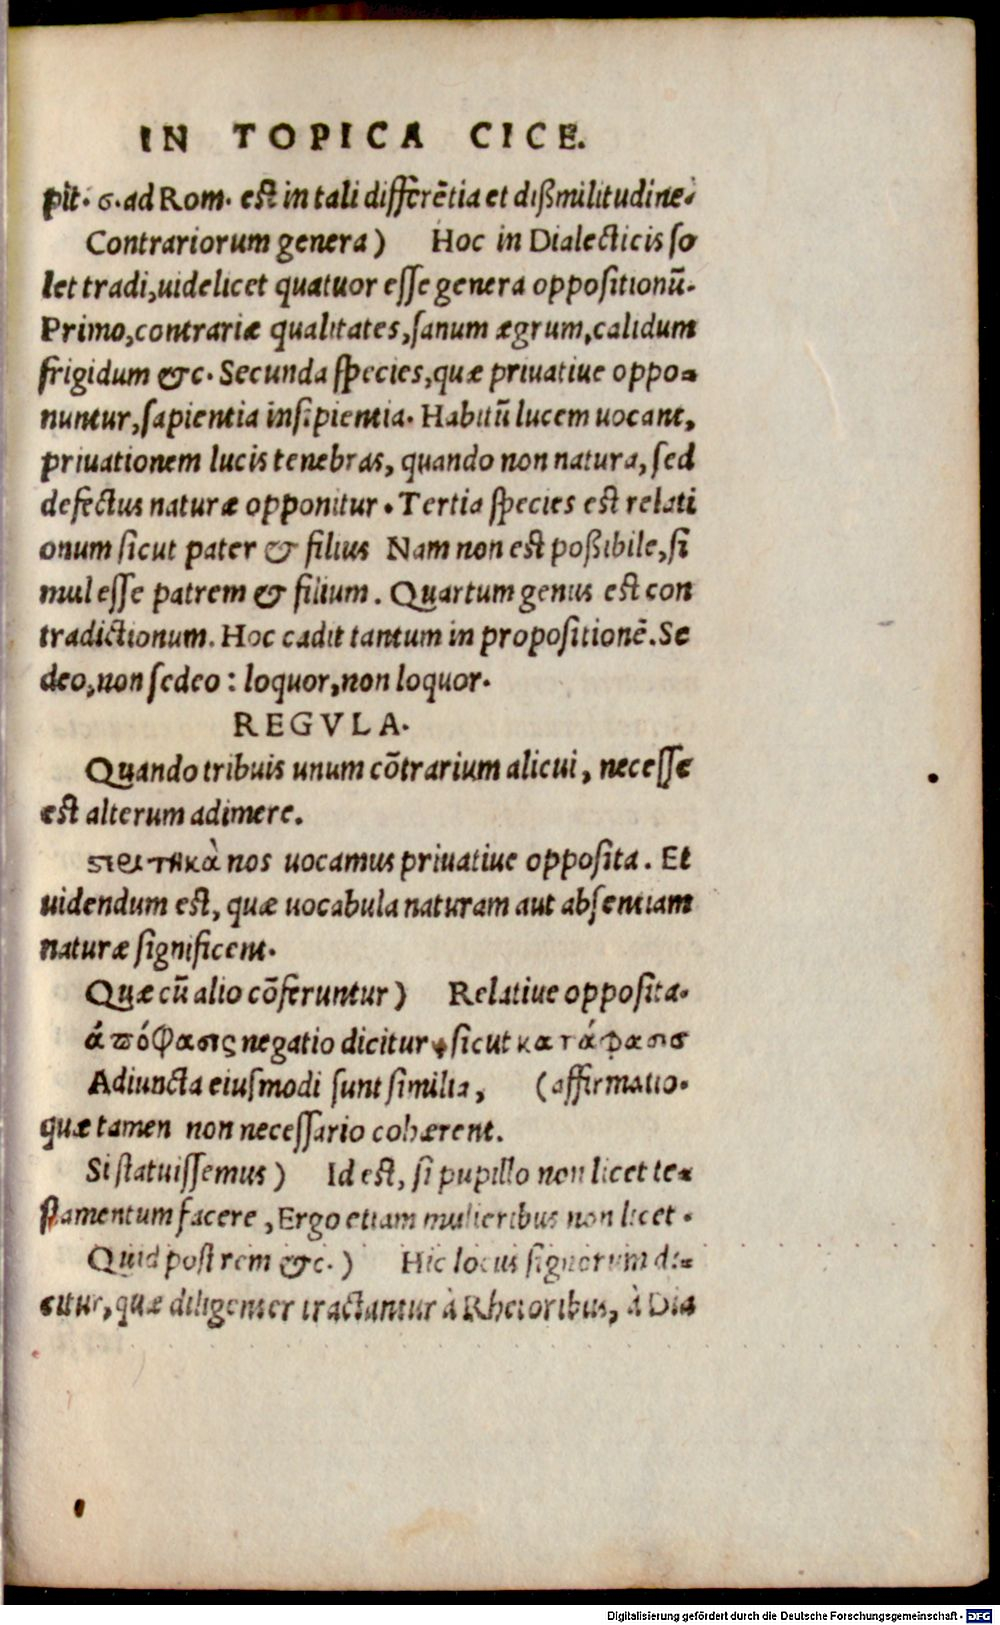 IN TOPICA CICE.
pit. 6. ad Rom. est in tali differẽtia et dißimilitudine.
Contrariorum genera) Hoc in Dialecticis so
let tradi, uidelicet quatuor esse genera oppositionũ.
Primo, contrariæ qualitates, sanum ægrum, calidum
frigidum &c. Secunda species, quæ priuatiue oppo=
nuntur, sapientia insipientia. Habitũ lucem uocant,
priuationem lucis tenebras, quando non natura, sed
defectus naturæ opponitur. Tertia species est relati
onum sicut pater & filius Nam non est poßibile, si
mul esse patrem & filium. Quartum genus est con
tradictionum. Hoc cadit tantum in propositionẽ. Se
deo, non sedeo: loquor, non loquor.
REGVLA.
Quando tribuis unum cõtrarium alicui, necesse
est alterum adimere.
ϛερητικὰ nos uocamus priuatiue opposita. Et
uidendum est, quæ uocabula naturam aut absentiam
naturæ significent.
Quæ cũ alio cõferuntur) Relatiue opposita.
ἀπόφασις negatio dicitur, sicut κατάφασις
Adiuncta eiusmodi sunt similia, (affirmatio.
quæ tamen non necessario cohærent.
Si statuissemus) Id est, si pupillo non licet te=
stamentum facere, Ergo etiam mulieribus non licet.
Quid post rem &c.) Hic locus signorum di=
citur, quæ diligenter tractantur à Rhetoribus, à Dia
Digitalisierung gefördert durch die Deutsche Forschungsgemeinschaft - DFG